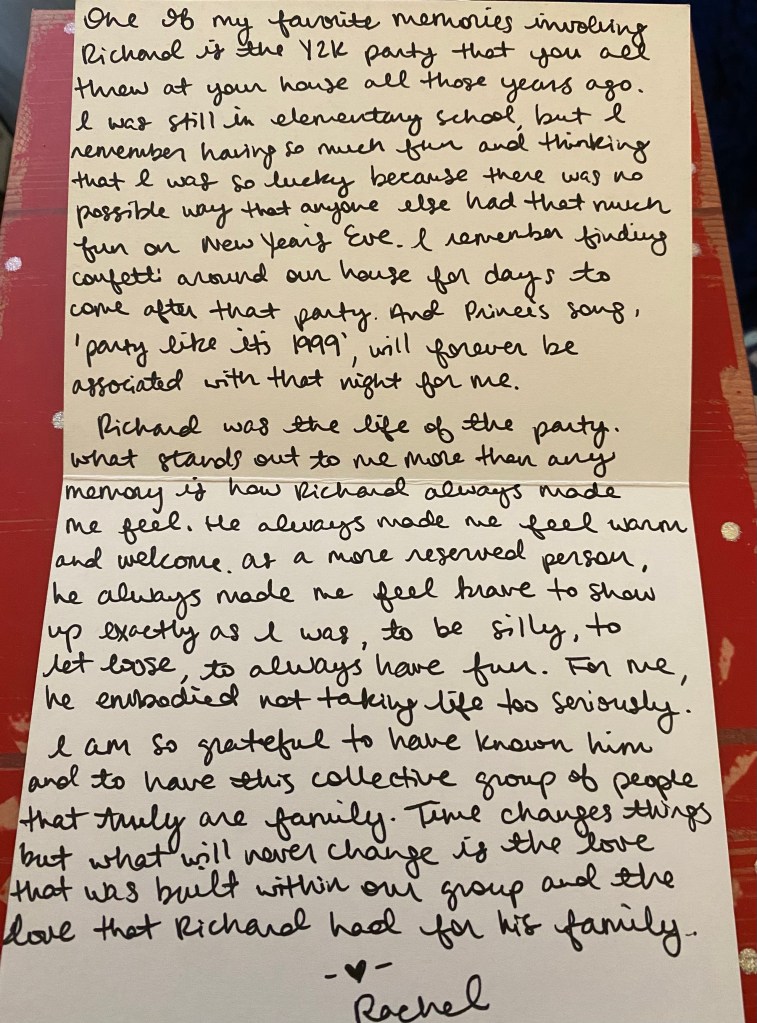 One of my favorite memories involving
Richard is the Y2K party that you all
threw at your house all those years ago.
I was still in elementary school, but I
remember having so much fun and thinking
that I was so lucky because there was no
possible way that anyone else had that much
fun on New Year's Eve. I remember finding
confetti around our house for days to
come after that party. And Prince's song,
'party like it's 1999', will forever be
associated with that night for me.
Richard was the life of the party.
What stands out to me more than any
memory is how Richard always made
me feel. He always made me feel warm
and welcome. As a more reserved person,
he always made me feel brave to show
up exactly as I was, to be silly, to
let loose, to always have fun. For me,
he embodied not taking life too seriously.
I am so grateful to have known him
and to have this collective group of people
that truly are family. Time changes things
but what will never change is the love
that was built within our group and the
love that Richard had for his family.
-♥-
Rachel